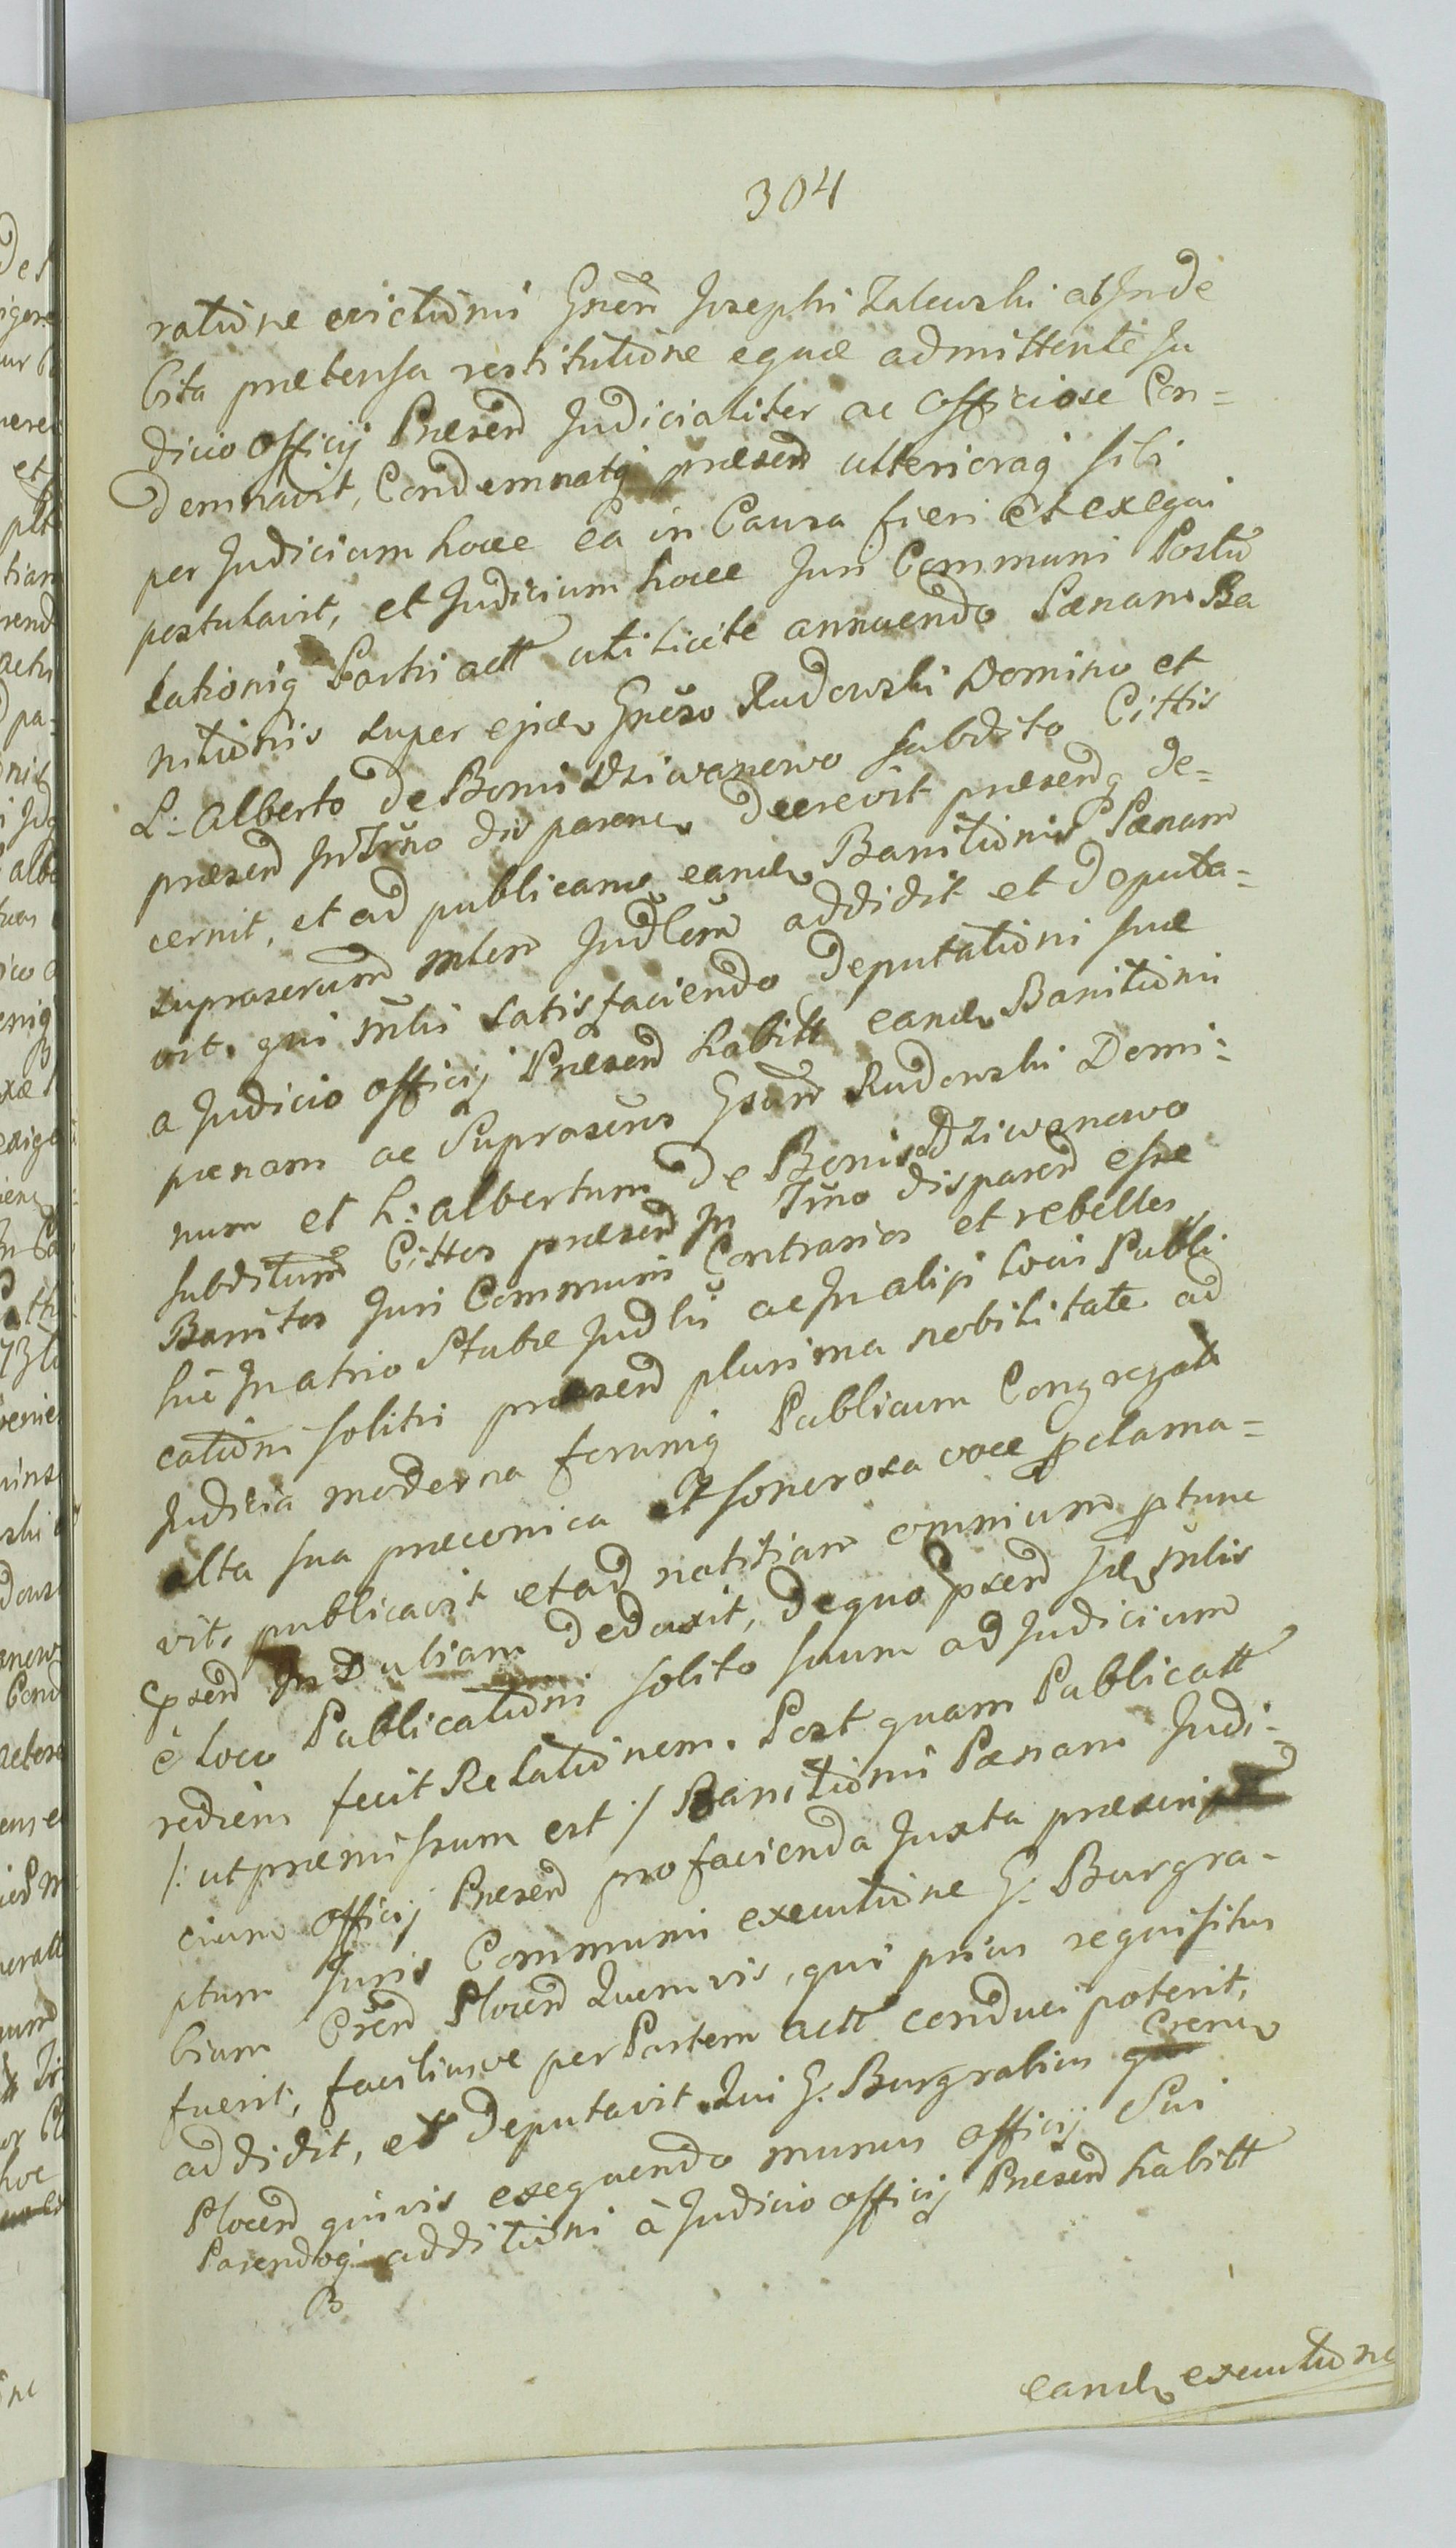 304
ratione evictionis Gnern Josephi Zalewski ab Inde
bita prætensa restitutione eqnæ admittente Ju
dicio Officij Præsend Judicialiter ac Officiose Con=
demnavit, Condemnatq præsend ulterioraq sibi
per Judicium hocce ea in Causa fieri et exequi
postulavit, et Judicium hocce Juri Communi Postu
lationiq Partis actt uti licitæ annuendo Pænam Ba
nitionis super ejsdem Gneroso Rudowski Domino et
L: Alberto de Bonis Dziwanowo subdito Cittis
præsend In Trno dis paren decrevit præsendq de=
cernit, et ad publicam eand Banitionis Pænam
suprascrum mlem Judlem addidit et deputa=
vit, qui mlis satisfaciendo deputationi suæ
a Judicio Officij Præsend habitt eand Banitionis
pænam ac Suprascrus Gnerum Rudowski Domi=
num et L: Albertum de Bonis Dziwanowo
subditum Cittos præsend In Trno disparend esse
Banitos Juri Communi Contrarios et rebelles,
hic In atrio Stubæ Judlis ac In alis loci Publi
cationi solitis præsend plurima nobilitate ad
Judicia moderna forumq Publicum Congregata
alta sua præconica et sonorosa voce pclama=
vit, publicavit et ad notitiam omnium ptunc
psend In Duliam deduxit, de quo psend Id mlis
è loco Publicationi solito suum ad Judicium
rediens fecit Relationem. Post quam Publicatt
/: ut præmissum est / Banitionis Pænam Judi=
cium Officij Præsend pro facienda Juxta præscri
ptum Juris Communis executione G. Burgra-
bium Crem Plocen Quemvis, qui prius requisitus
fuerit, faciliusve per Partem actt conduci poterit,
addidit, et deputavit. Qui G. Burgrabius Crens
Plocen quivis exequendo munus Officij Sui
Parendoq additioni à Judicio Officij Præsend habitt
eand executione